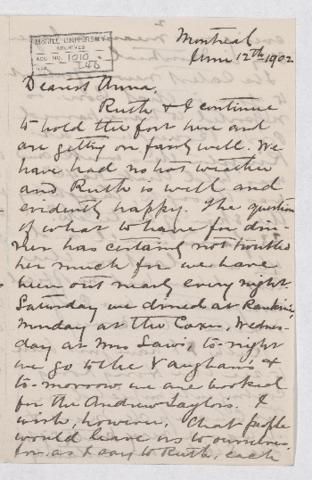 McGILL UNIVERSITY
ARCHIVES
ACC. NO. 1010
REF. 146
Montreal
June 12th 1902
Dearest Anna,
Ruth & I continue
to hold the fort here and
are getting on fairly well. We
have had no hot weather
and Ruth is well and
evidently happy. The question
of what to have for din-
ner has certainly not troubled
her much for we have
been out nearly every night.
Saturday we dined at Rankin's
Monday at the Coxes, Wednes-
day at Mrs Laws, to-night
we go to the Vaughans &
to-morrow we are booked
for the Andrew Taylors. I
wish, however, that people
would leave us to ourselves
for, as I say to Ruth, each